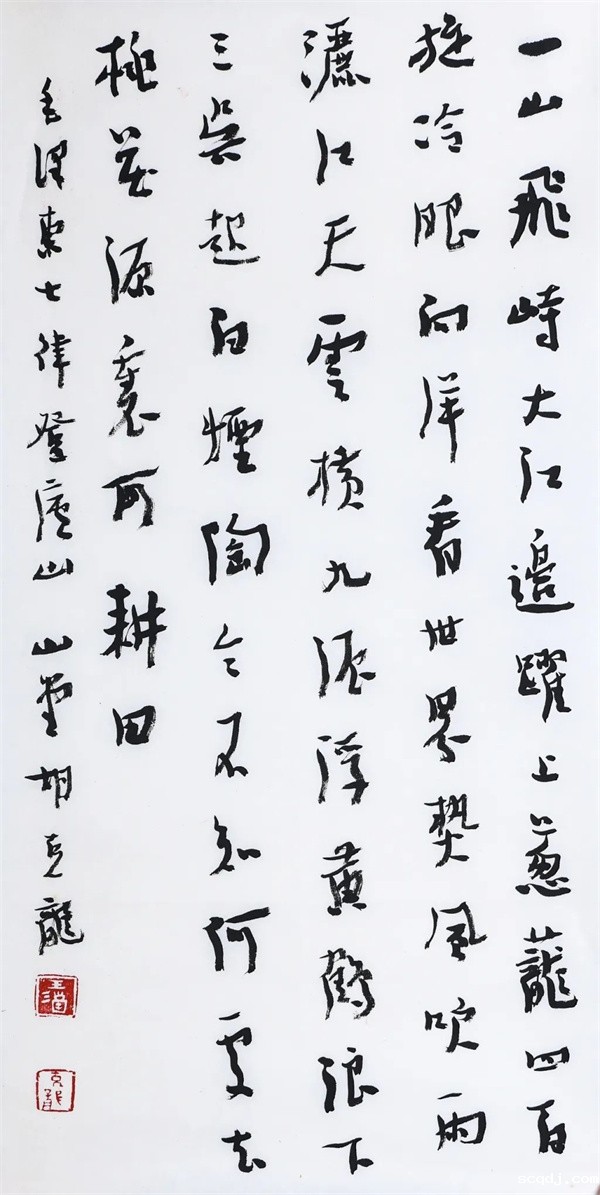 一山飛峙大江邊躍上葱蘢四百
旋冷眼向洋看世界熱風吹雨
灑江天雲横九派浮黄鶴浪下
三吳起白煙陶令不知何處去
桃花源裏可耕田
毛澤東七律登廬山 山堂胡克龍
克龍
scqdj.com